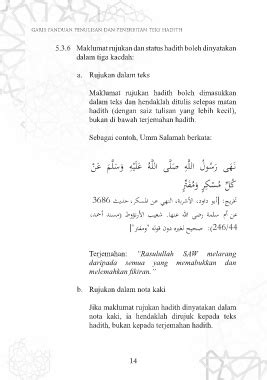 GARIS PANDUAN PENULISAN DAN PENERBITAN TEKS HADITH
5.3.6 Maklumat rujukan dan status hadith boleh dinyatakan
dalam tiga kaedah:
a. Rujukan dalam teks
Maklumat rujukan hadith boleh dimasukkan
dalam teks dan hendaklah ditulis selepas matan
hadith (dengan saiz tulisan yang lebih kecil),
bukan di bawah terjemahan hadith.
Sebagai contoh, Umm Salamah berkata:
نَهَى رَسُولُ اللَّهِ صَلَّى اللَّهُ عَلَيْهِ وَسَلَّمَ عَنْ
كُلِّ مُسْكِرٍ وَمُفَتِّرٍ
تخريج: [أبو داود، الأشربة، النهي عن المسكر، حديث 3686
عن أم سلمة رضي الله عنها. شعيب الأرنؤوط (مسند أحمد،
246/44): صحيح لغيره دون قوله "ومفتر"]
Terjemahan: "Rasulullah SAW melarang
daripada semua yang memabukkan dan
melemahkan fikiran."
b. Rujukan dalam nota kaki
Jika maklumat rujukan hadith dinyatakan dalam
nota kaki, ia hendaklah dirujuk kepada teks
hadith, bukan kepada terjemahan hadith.
14